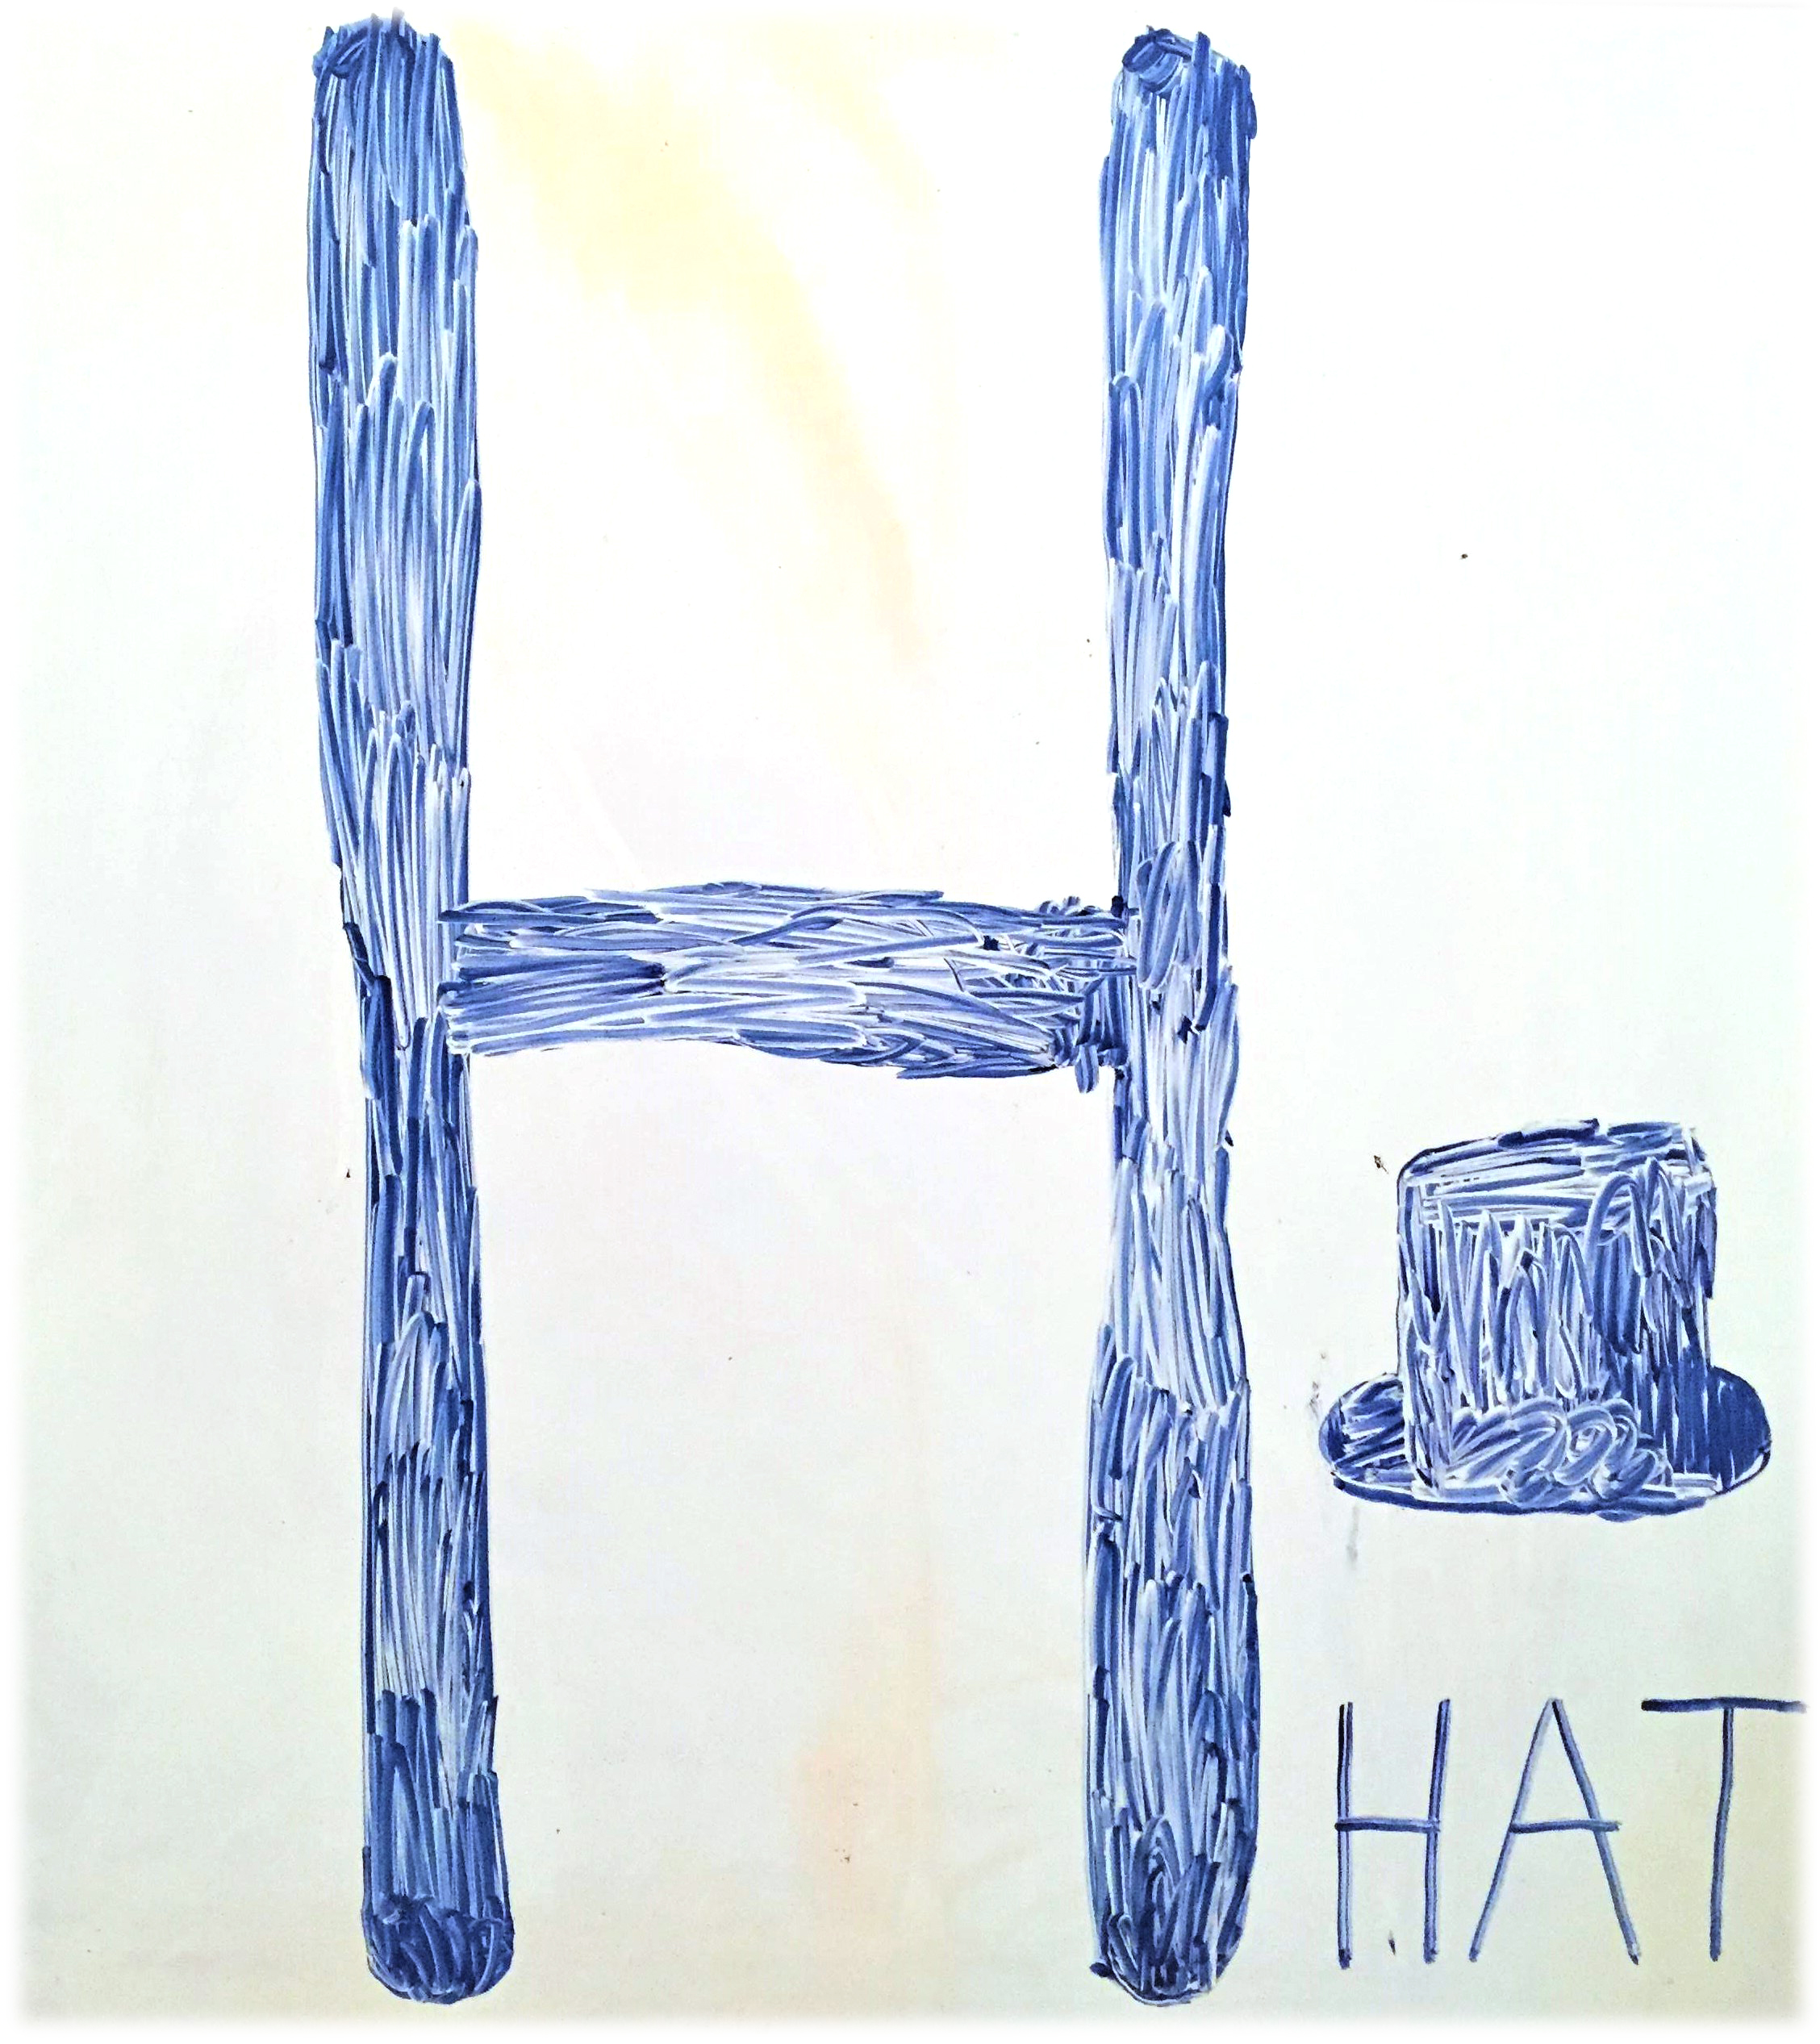 H
HAT